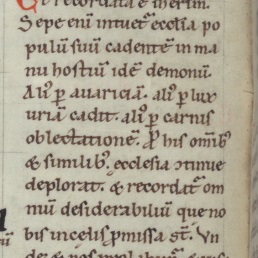 Et recordata ē iherim̄.
Sepe eni͞ intuet᷑ ecclia po
pulu͞ suu͞ cadentē in ma
nu hostiu͞ idē demonu͞.
Aliꝰ ꝑ auariciā. aliꝰ ꝑ lux
uriā cadit. aliꝰ ꝑ carnis
oblectationē. ꝓ his om̄ibꝰ
& similibꝰ ecclesia ɔtinue
deplorat. & recordat᷑ om
niu͞ desiderabiliu͞ que no
bis in celis ꝓmissa st̄. Vn
de & nos